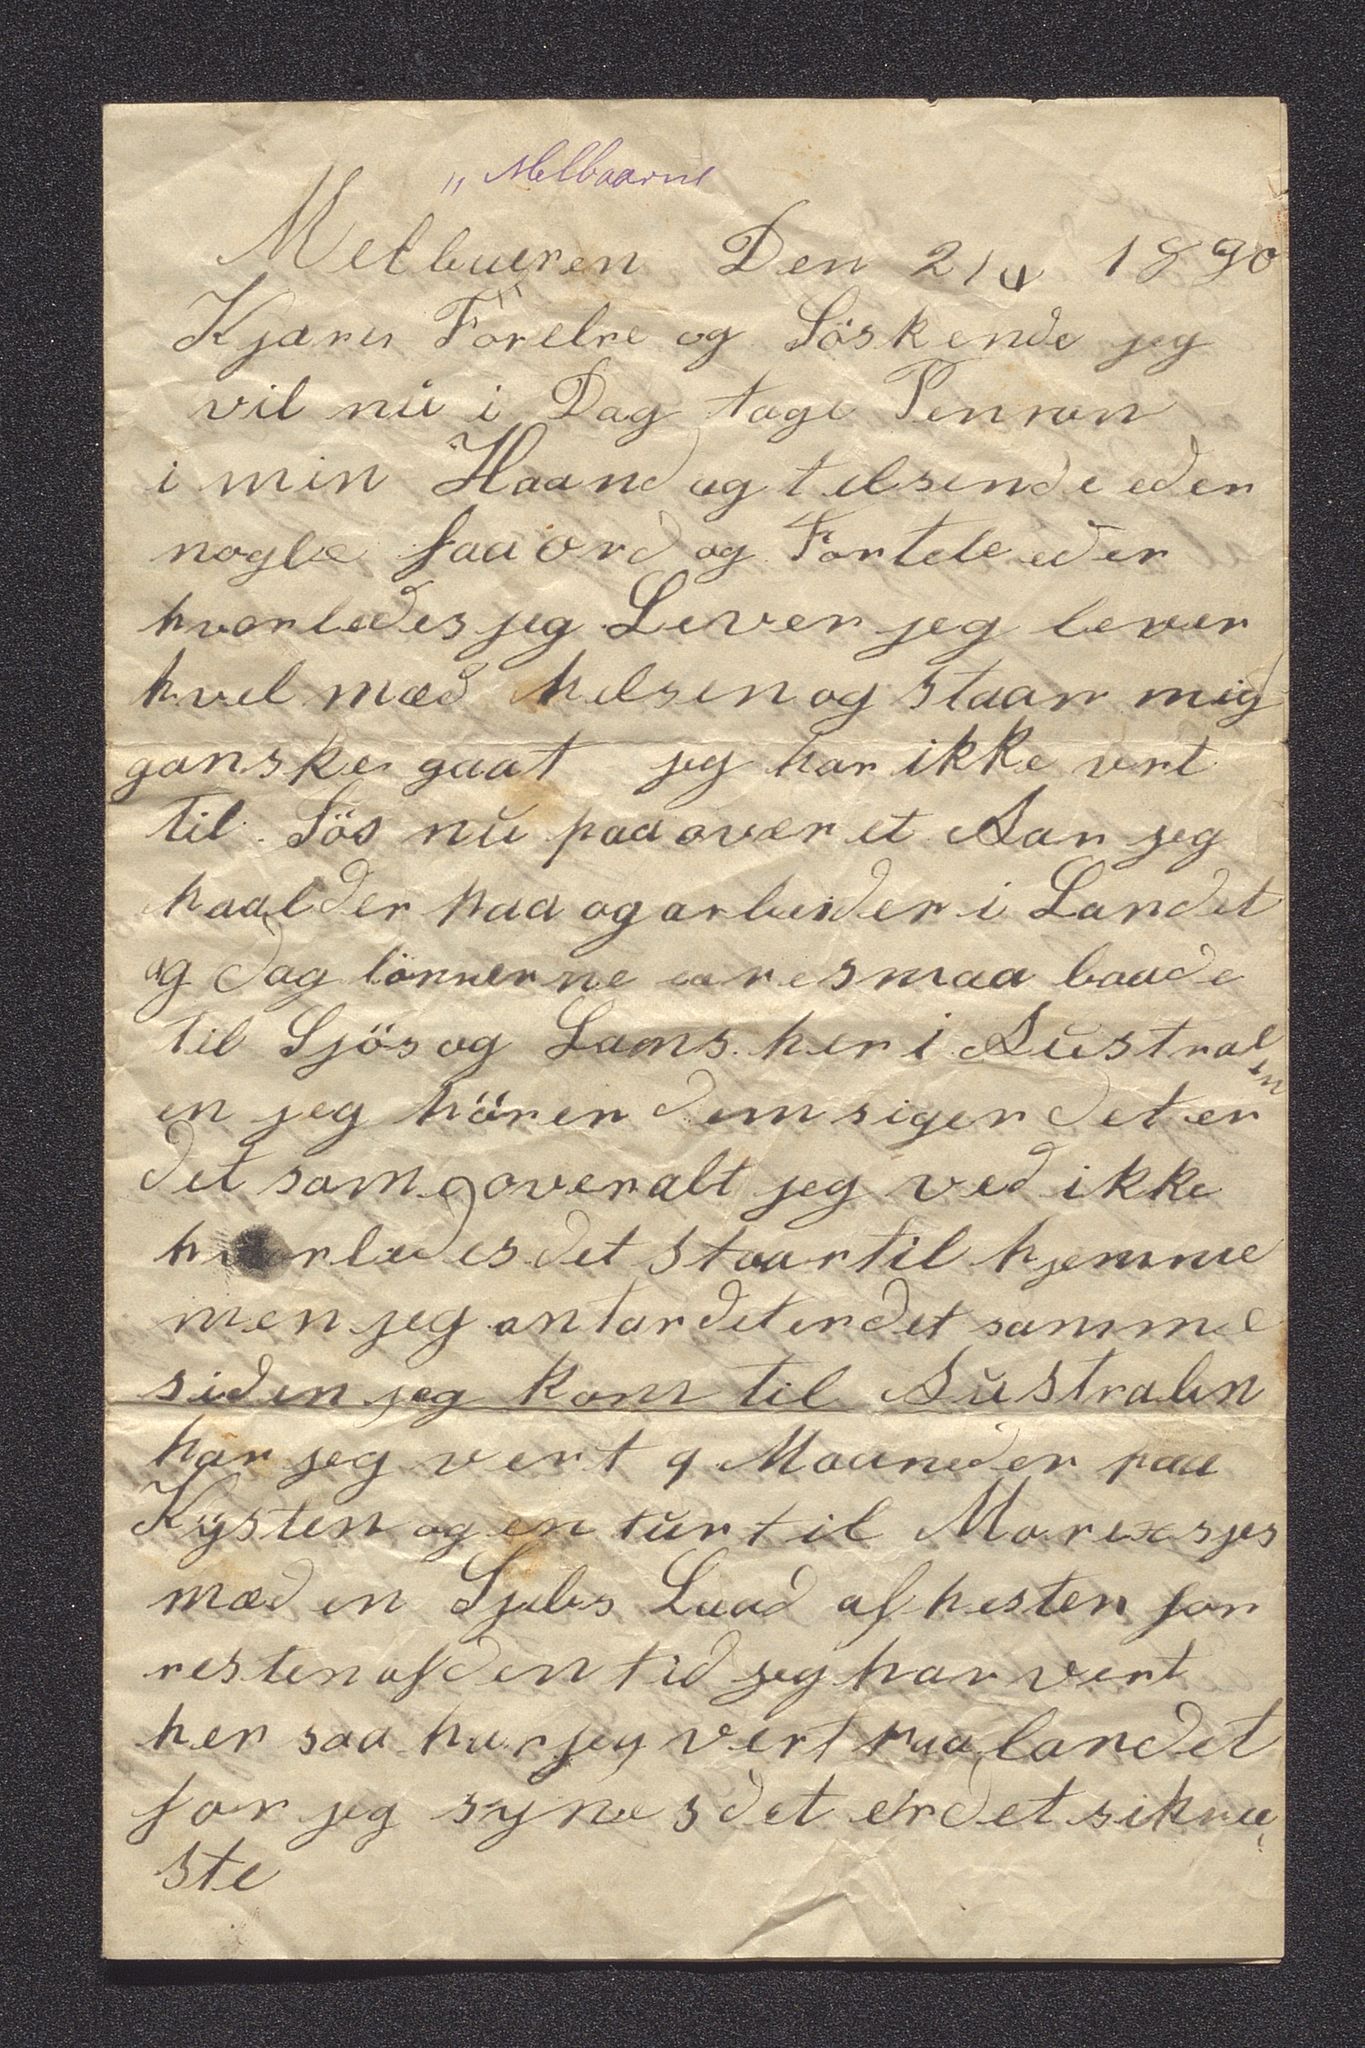 " Melbaarne
Melbueren Den 2/4 1890
Kjære Förelre og Söskende jeg
vil nu i Dag tage Pennan
i min Haand og telsende eder
nogle faa ord og Fortele eder
hvorledes jeg Lever jeg lever
hvel mæd helsen og staar mig
ganske gaat jeg har ikke vert
til Sös nu paa over et Aar jeg
haalder paa og arbeider i Landet
og dag lönnerne ere smaa baade
til Sjös og Lans her i Austral
en jeg hörer dem siger det er
det same overalt jeg ved ikke
hvorledes det staar til hjemme
men jeg antar det er det samme
siden jeg kom til Australen
har jeg vert 9 Maaneder paa
Kysten og en tur til
mæd en Sjibs Laad af hesten for
resten af den tid jeg har vert
her saa har jeg vert paa landet
for jeg synes det er det sikree
ste